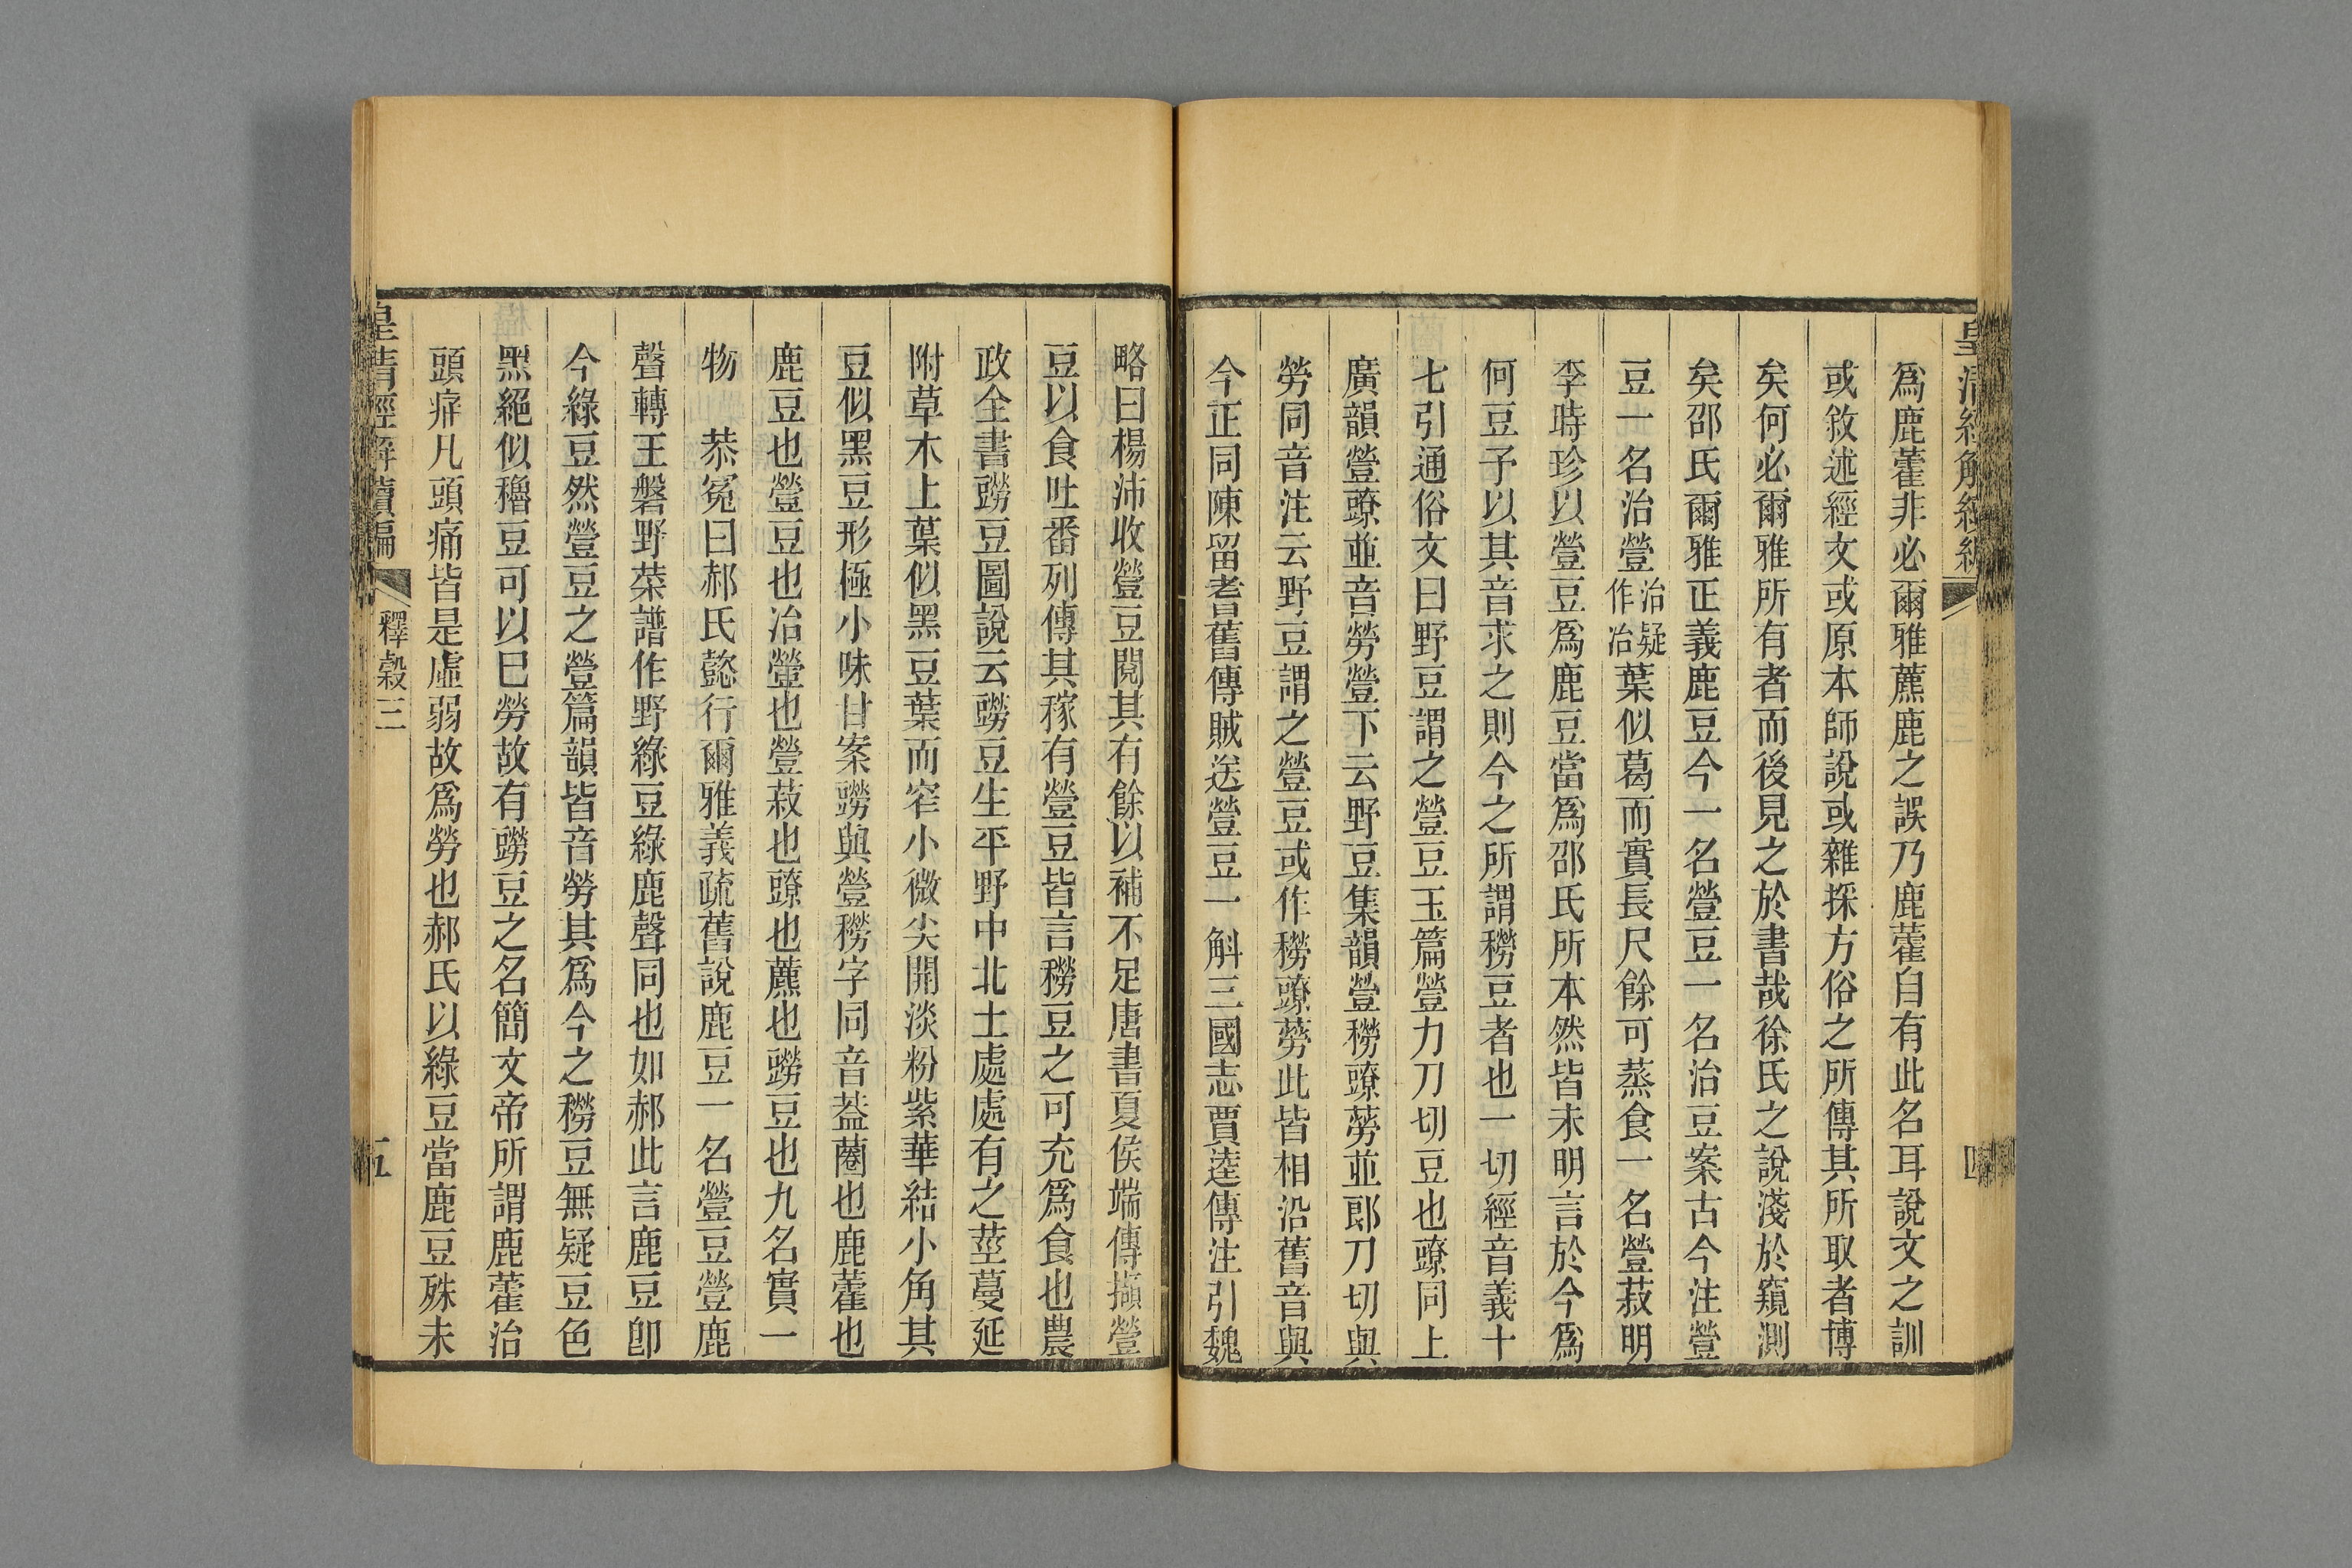 爲鹿藿非必爾雅藨鹿之誤乃鹿藿自有此名耳說文之訓
或敘述經文或原本師說或雜採方俗之所傳其所取者博
矣何必爾雅所有者而後見之於書哉徐氏之說淺於窺測
矣邵氏爾雅正義鹿豆今一名䝁豆一名治豆案古今注䝁
豆一名治䝁治疑作冶葉似葛而實長尺餘可蒸食一名䝁菽明
李時珍以䝁豆爲鹿豆當爲邵氏所本然皆未明言於今爲
何豆予以其音求之則今之所謂穞豆者也一切經音義十
七引通俗文曰野豆謂之䝁豆玉篇䝁力刀切豆也䝀同上
廣韻䝁䝀並音勞䝁下云野豆集韻䝁䝀並郎刀切與
勞同音注云野豆謂之䝁豆或作䝀此皆相沿舊音與
今正同陳留耆舊傳賊送䝁豆一斛三國志賈逵傳注引魏
略曰楊沛收䝁豆閱其有餘以補不足唐書夏侯端傳擷䝁
豆以食吐番列傳其稼有䝁豆皆言豆之可充爲食也農
政全書䝤豆圖說云䝤豆生平野中北土處處有之莖蔓延
附草木上葉似黑豆葉而窄小微尖開淡粉紫華結小角其
豆似黑豆形極小味甘案䝤與䝁字同音葢蔨也鹿藿也
鹿豆也䝁豆也治䝁也䝁菽也䝀也藨也䝤豆也九名實一
物 恭冕曰郝氏懿行爾雅義疏舊說鹿豆一名䝁豆䝁鹿
聲轉王磐野菜譜作野綠豆綠鹿聲同也如郝此言鹿豆卽
今綠豆然䝁豆之䝁篇韻皆音勞其爲今之豆無疑豆色
黑絕似穭豆可以巳勞故有䝤豆之名簡文帝所謂鹿藿治
頭痹凡頭痛皆是虛弱故爲勞也郝氏以綠豆當鹿豆殊未
皇清經解續編 釋穀三 五